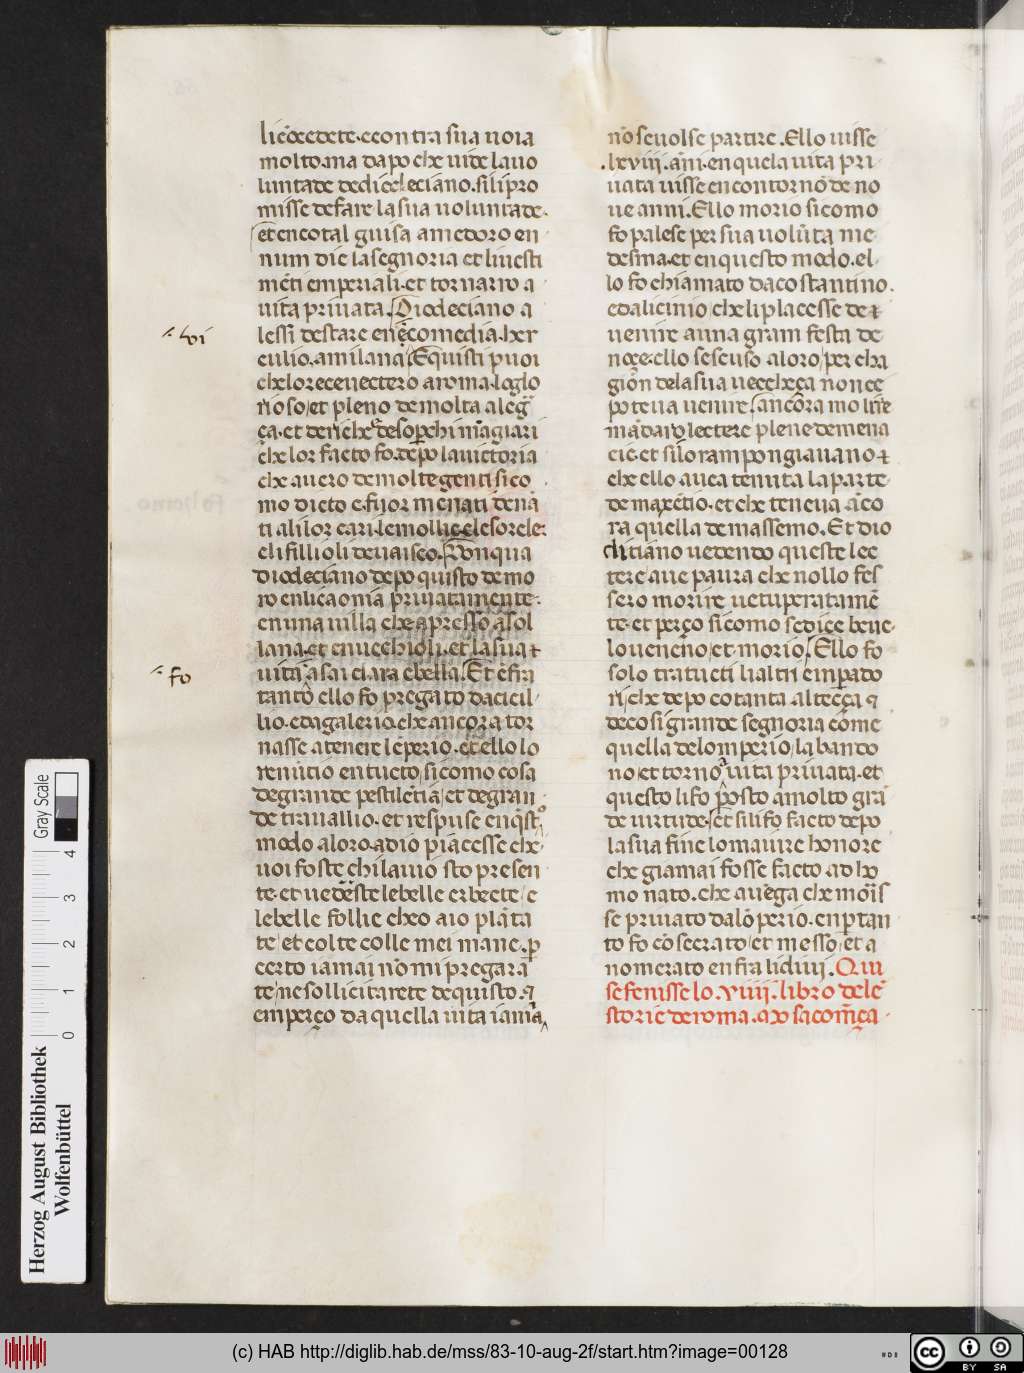 liẽ ecedete. e contra sua uoia
molto. ma dapo che uide la uo
luntade de diecleciano. sili pro
misse de fare la sua uoluntade.
et en cotal guisa amedoro en
num die la segnoria et li uesti
mẽti emperiali. et tornarro a
uita priuata. Diocleciano a
lessi de stare en ẽcomedia. her
culio. a milana. Equisti puoi
che lor receuectero a roma. lo glo
rioso et pleno de molta aleg̃
ça. et de riche de soꝑchi mãgiari
che lor facto fo. depo la uictoria
che auero de molte genti sico
mo dicto e. fuor menati denã
ti a li lor cari. le mollie. ele sorele.
e li fillioli de uaiseo. Donqua
diocleciano depo quisto demo
ro en licaoniã priuatamente.
en una uilla che apresso a sol
lana. et en uecchioli. et la sua
uita asai clara e bella. Et ẽ fra
tanto ello fo pregato da cicil
lio. e da galerio. che ancora tor
nasse a tenere lẽperio. et ello lo
renũtio en tucto. sicomo cosa
de grande pestilẽtiã et de gran
de trauallio. et respuse en q̃st
modo a loro. a dio piacesse che
uoi foste chi la mio sto presen
te. et uedẽste le belle erbecte e
le belle follie cheo aio plãta
te et colte colle mei mane. ꝑ
certo iamai nõ mi pregara
te ne sollicitarete de quisto. ꝯ
emperço da quella uita iamã
ui
fo
nõ se uolse partire. Ello uisse
.lxviii. ãni. en quela uita pri
uata uisse en contorno de no
ue anni. Ello morio sicomo
fo palese per sua uolũta me
desma. et en questo modo. el
lo fo chiamato da costantino.
e da licinio che li placesse de
uenire a una gram festa de
noçe. ello se scuso a loro per cha
giõn dela sua uecchęça non ce
poteua uenire. ancõra molte
mãdaro lectere plene de mena
cie. et silo rampongiauano
che ello auea tenuta la parte
de maxẽtio. et che teneua ãco
ra quella de massemo. Et dio
cliciano uedendo queste lec
tere aue paura che nollo fes
sero morire uetuperatamẽ
te. et perço sicomo se dice beue
lo ueneno et morio. Ello fo
solo tra tucti li altri empado
ri che depo cotanta alteçça
de cosi grande segnoria cõme
quella de lomperio la bando
no et torno a uita priuata. et
questo li fo ꝓposto a molto grã
de uirtude. et sili fo facto depo
la sua fine lo maiure honore
che giamai fosse facto ad ho
mo nato. che auẽga che moiis
se priuato da lo perio. enꝑtan
to fo cõsecrato et messo et a
nomerato en fra li dĩuĩ. Qui
se fenisse lo .viiii. libro dele
storie de roma. apo sa comẽça
Herzog August Bibliothek
Wolfenbüttel
0 1 2 3 4
Gray Scale
(c) HAB http://diglib.hab.de/mss/83-10-aug-2f/start.htm?image=00128
cc BY SA